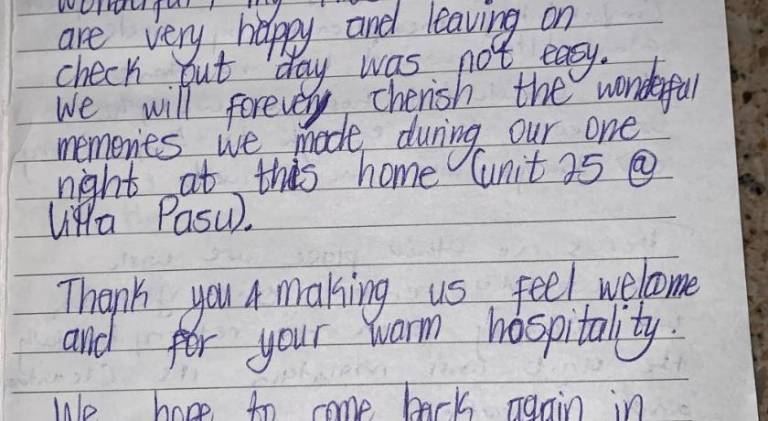 wonderful, my
are very happy and leaving on
check out day was not easy.
We will forevery cherish the wonderful
memories we made during our one
night at this home (unit 25 @
Villa Pasu).
Thank you 4 making us feel welome
and for your warm hospitality.
We hope to come back again in